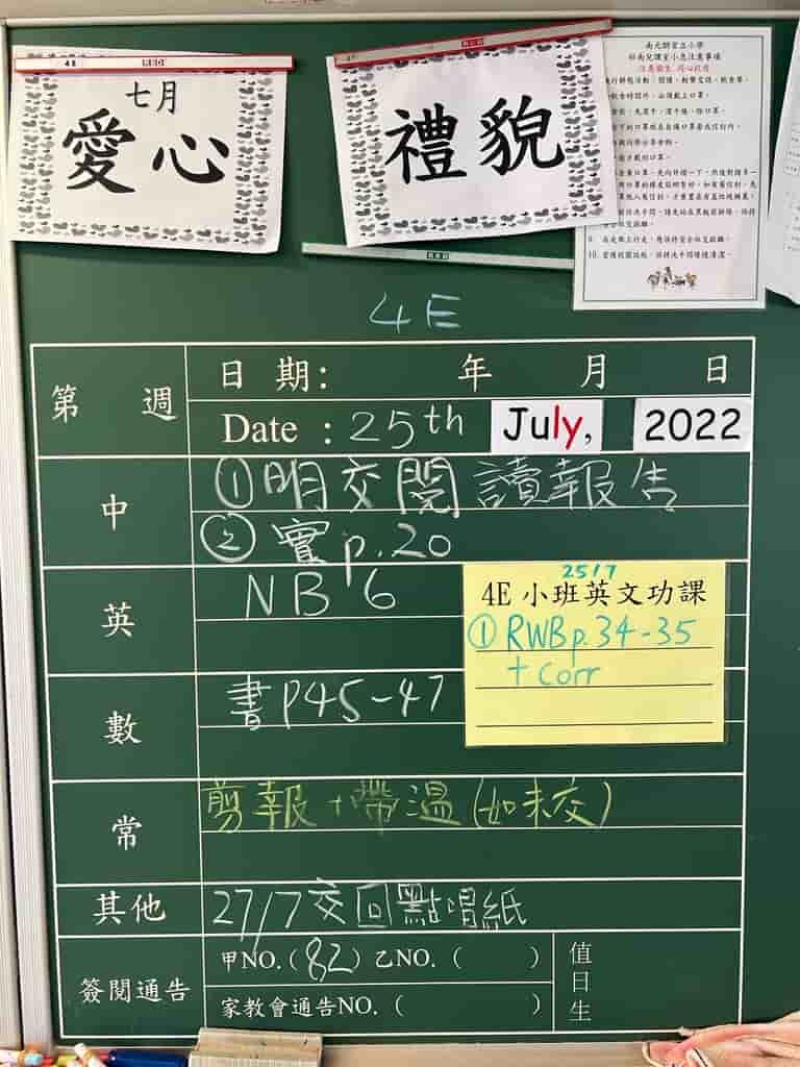 七月
愛心
禮貌
4E
第 週
日 期： 年 月 日
Date : 25th July, 2022
中
①明交閱讀報告
②實p.20
英
NB 6
25/7
4E 小班英文功課
① RWB p.34-35
+ Corr
數
書P45-47
常
剪報+帶溫(如未交)
其他
27/7交回點唱紙
簽閱通告
甲NO.(82) 乙NO. ( )
家教會通告NO. ( )
值日生